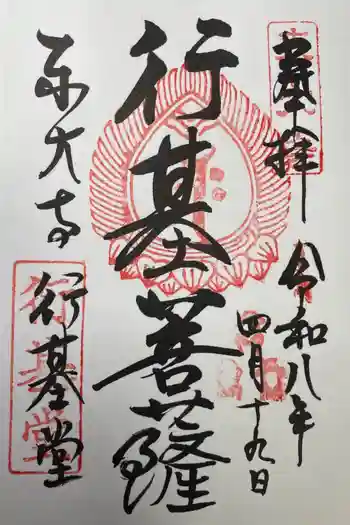 奉拝
令和八年
四月十九日
行基菩薩
東大寺
行基堂
行基堂